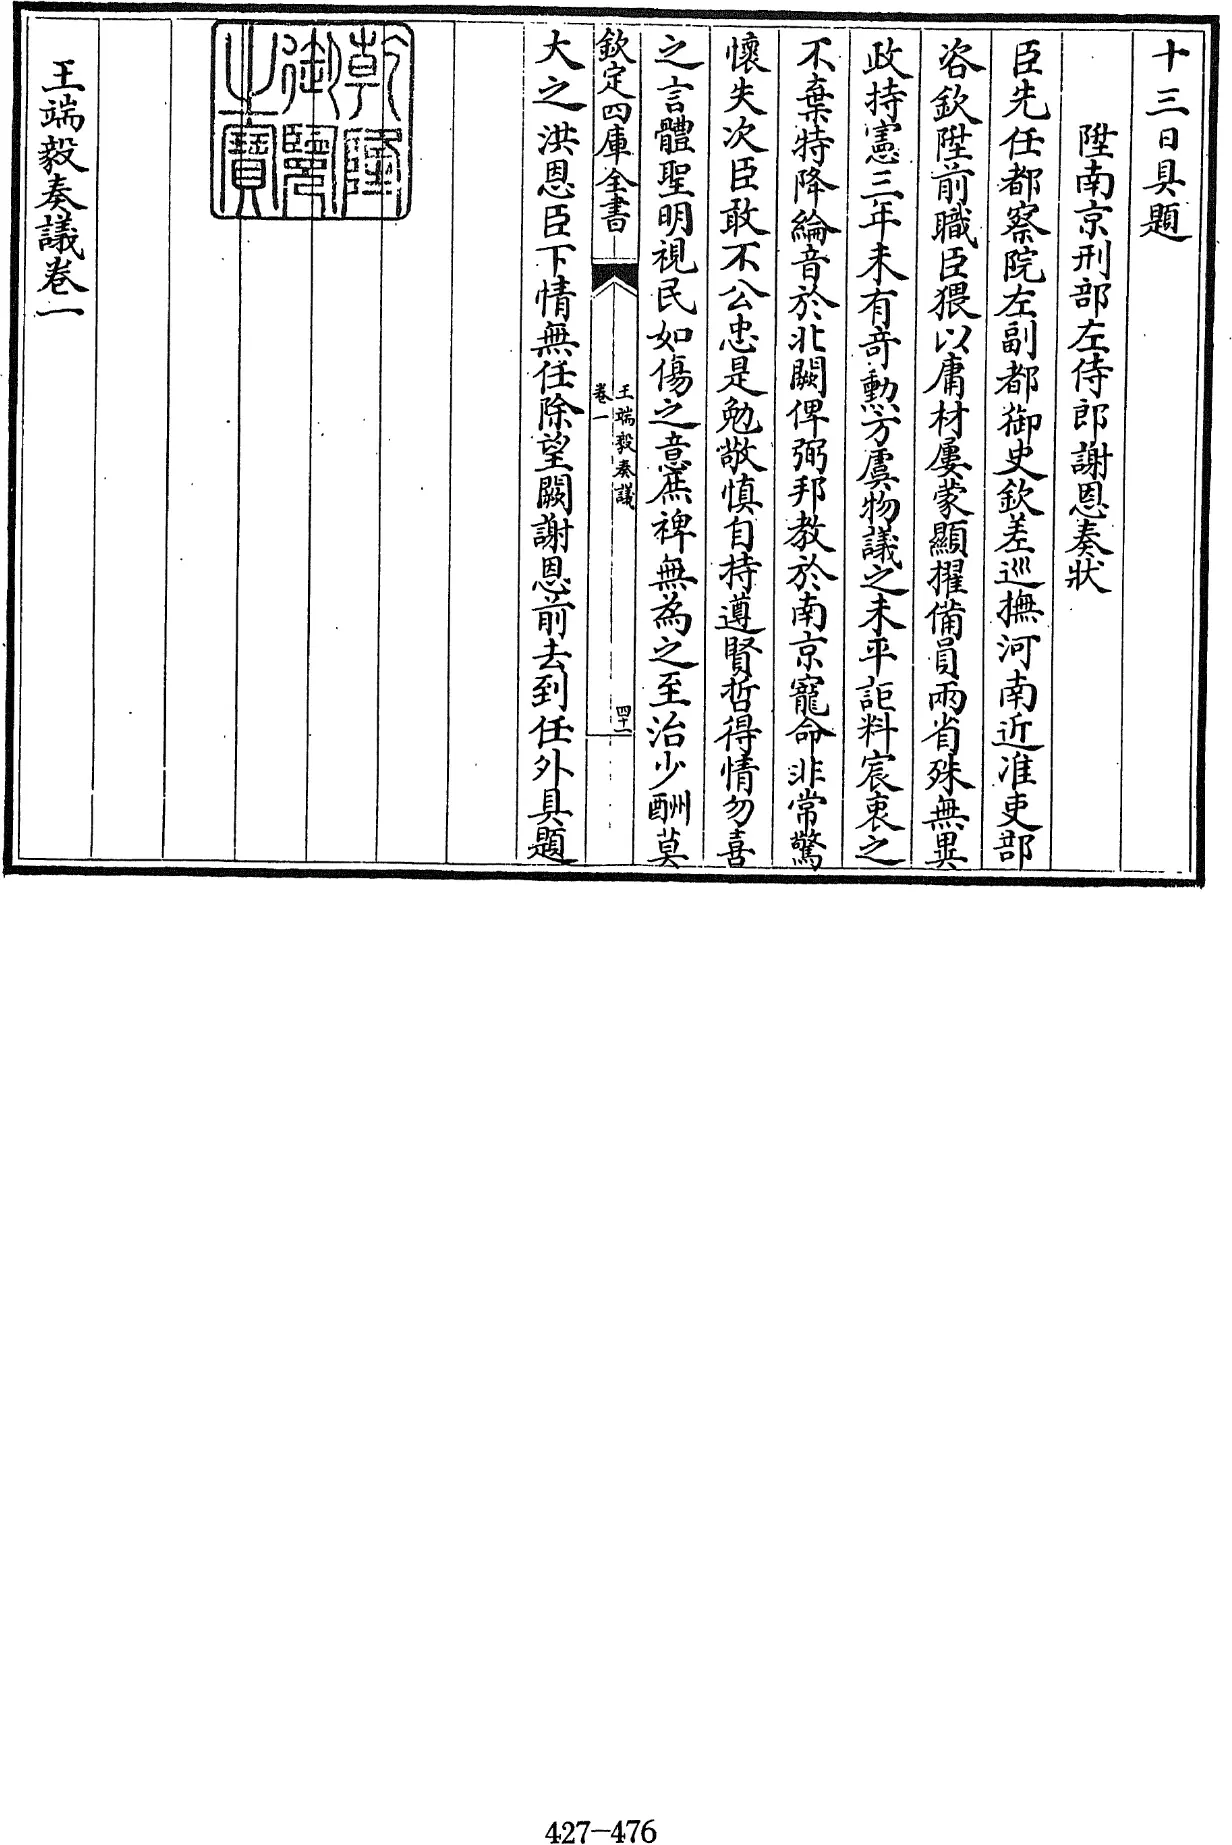 十三日具題
陞南京刑部左侍郎謝恩奏狀
臣先任都察院左副都御史欽差巡撫河南近准吏部
咨欽陞前職臣猥以庸材屢蒙顯擢備員兩省殊無異
政持憲三年未有竒勲方虞物議之未平詎料宸衷之
不棄特降綸音於北闕俾弼邦教於南京寵命非常驚
懷失次臣敢不公忠是勉敬慎自持遵賢哲得情勿喜
之言體聖明視民如傷之意庶裨無為之至治少酬莫
欽定四庫全書
王端毅奏議
卷一
四十一
大之洪恩臣下情無任除望闕謝恩前去到任外具題
乾隆御覽之寶
王端毅奏議卷一
427-476